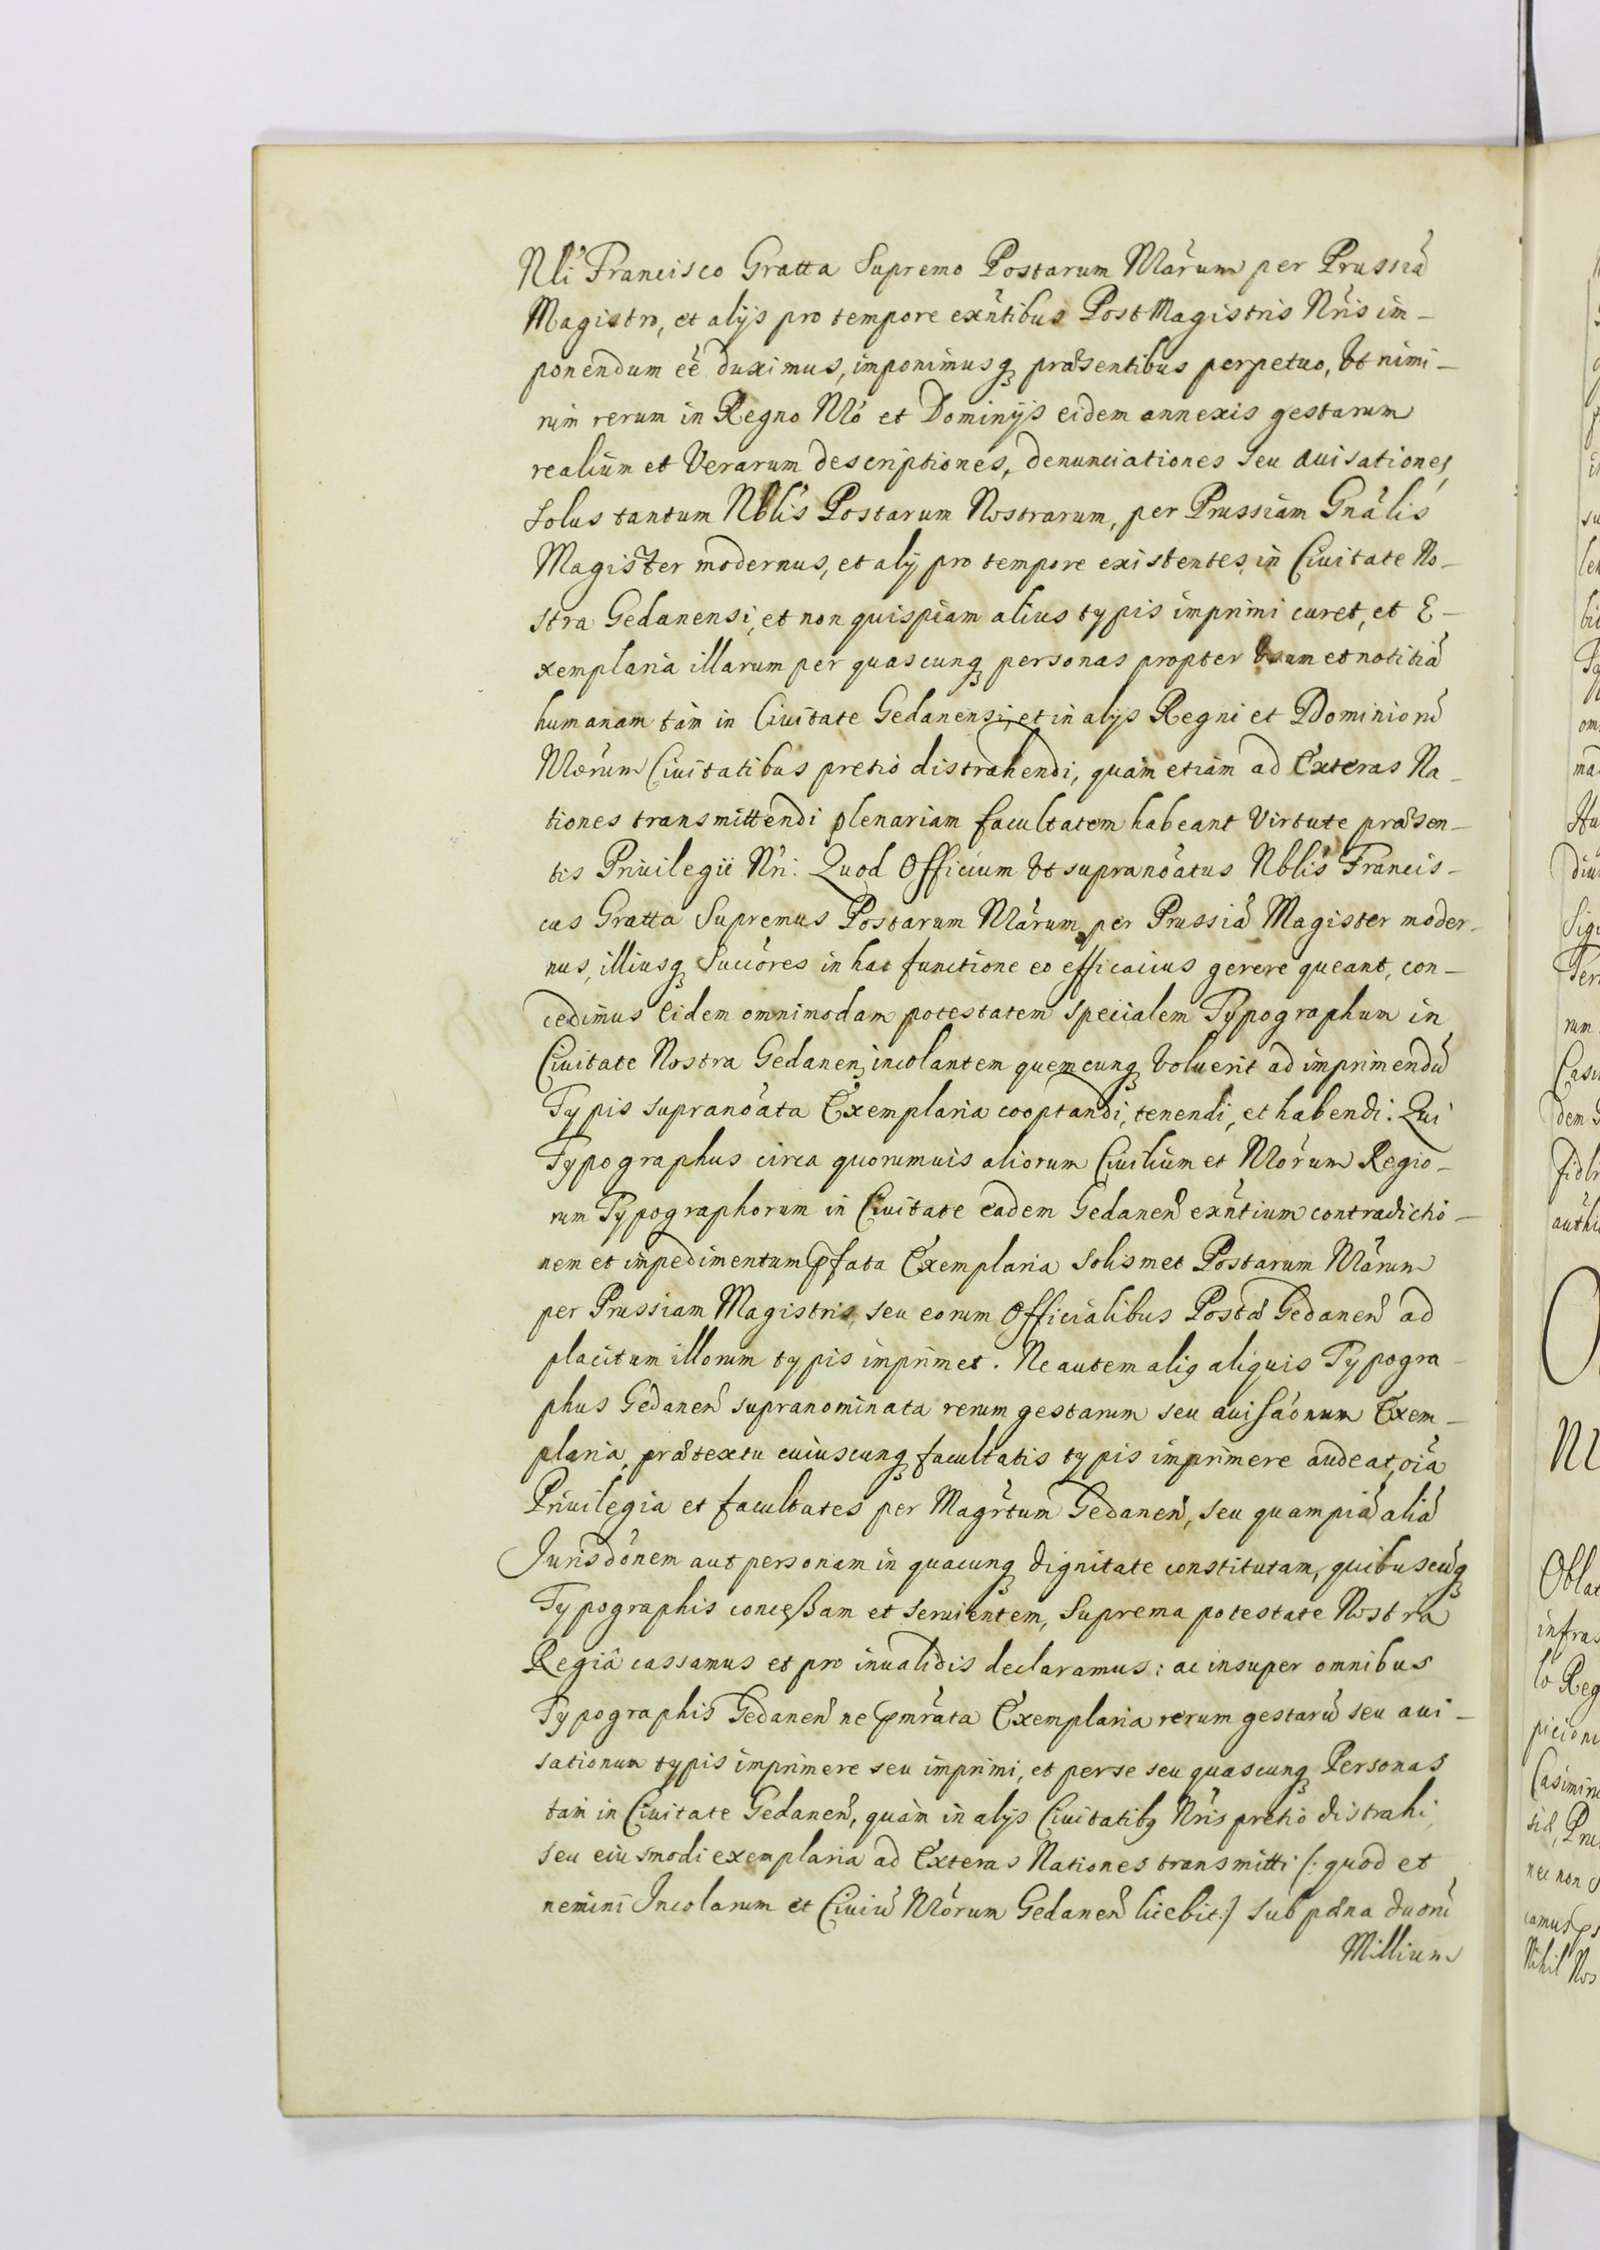 Nli Francisco Gratta Supremo Postarum Nrarum per Prussiã
Magistro, et alijs pro tempore exñtibus Post Magistris Nris im-
ponendum eẽ duximus, imponimusq præsentibus perpetuo, Vt nimi-
rum rerum in Regno Nro et Dominijs eidem annexis gestarum
realium et Verarum descriptiones, denunciationes seu auisationes,
solus tantum Nblis Postarum Nostrarum, per Prussiam Gnalis
Magister modernus, et alij pro tempore existentes, in Ciuitate No-
stra Gedanensi, et non quispiam alius typis imprimi curet, et E-
xemplaria illarum per quascunq personas propter Vsum et notitiã
humanam tam in Ciuitate Gedanensi, et in alijs Regni et Dominiorũ
Nrorum Ciuitatibus pretio distrahendi, quam etiam ad Exteras Na-
tiones transmittendi plenariam facultatem habeant Virtute præsen-
tis Priuilegii Nri. Quod Officium Vt supranoatus Nblis Francis-
cus Gratta Supremus Postarum Nrarum per Prussiã Magister moder-
nus, illiusq Succores in hac functione eo efficacius gerere queant, con-
cedimus Eidem omnimodam potestatem specialem Typographum in
Ciuitate Nostra Gedanen, incolantem quemcunq Voluerit ad imprimendũ
Typis supranoata Exemplaria cooptandi, tenendi, et habendi: Qui
Typographus circa quorumuis aliorum Ciuilium et Nrorum Regio-
rum Typographorum in Ciuitate eadem Gedanen exñtium contradictio-
nem et impedimentum pfata Exemplaria solismet Postarum Nrarum
per Prussiam Magistris, seu eorum Officialibus Postæ Gedanen ad
placitum illorum typis imprimet. Ne autem aliq aliquis Typogra-
phus Gedanen supranominata rerum gestarum seu auisaonum Exem-
plaria, prætextu cuiuscunq facultatis typis imprimere audeat, oia
Priuilegia et facultates per Magrtum Gedanen, seu quampiã aliã
Jurisdonem aut personam in quacunq dignitate constitutam, quibuscũq
Typographis conceßam et seruientem, Suprema potestate Nostra
Regiâ cassamus et pro inualidis declaramus: ac insuper omnibus
Typographis Gedanen ne pmrata Exemplaria rerum gestarũ seu aui-
sationum typis imprimere seu imprimi, et per se seu quascunq Personas
tam in Ciuitate Gedanen, quàm in alijs Ciuitatibq Nris pretio distrahi,
seu eiusmodi exemplaria ad Exteras Nationes transmitti (: quod et
nemini Incolarum et Ciuiũ Nrorum Gedanen licebit:) sub pœna duorũ
Millium